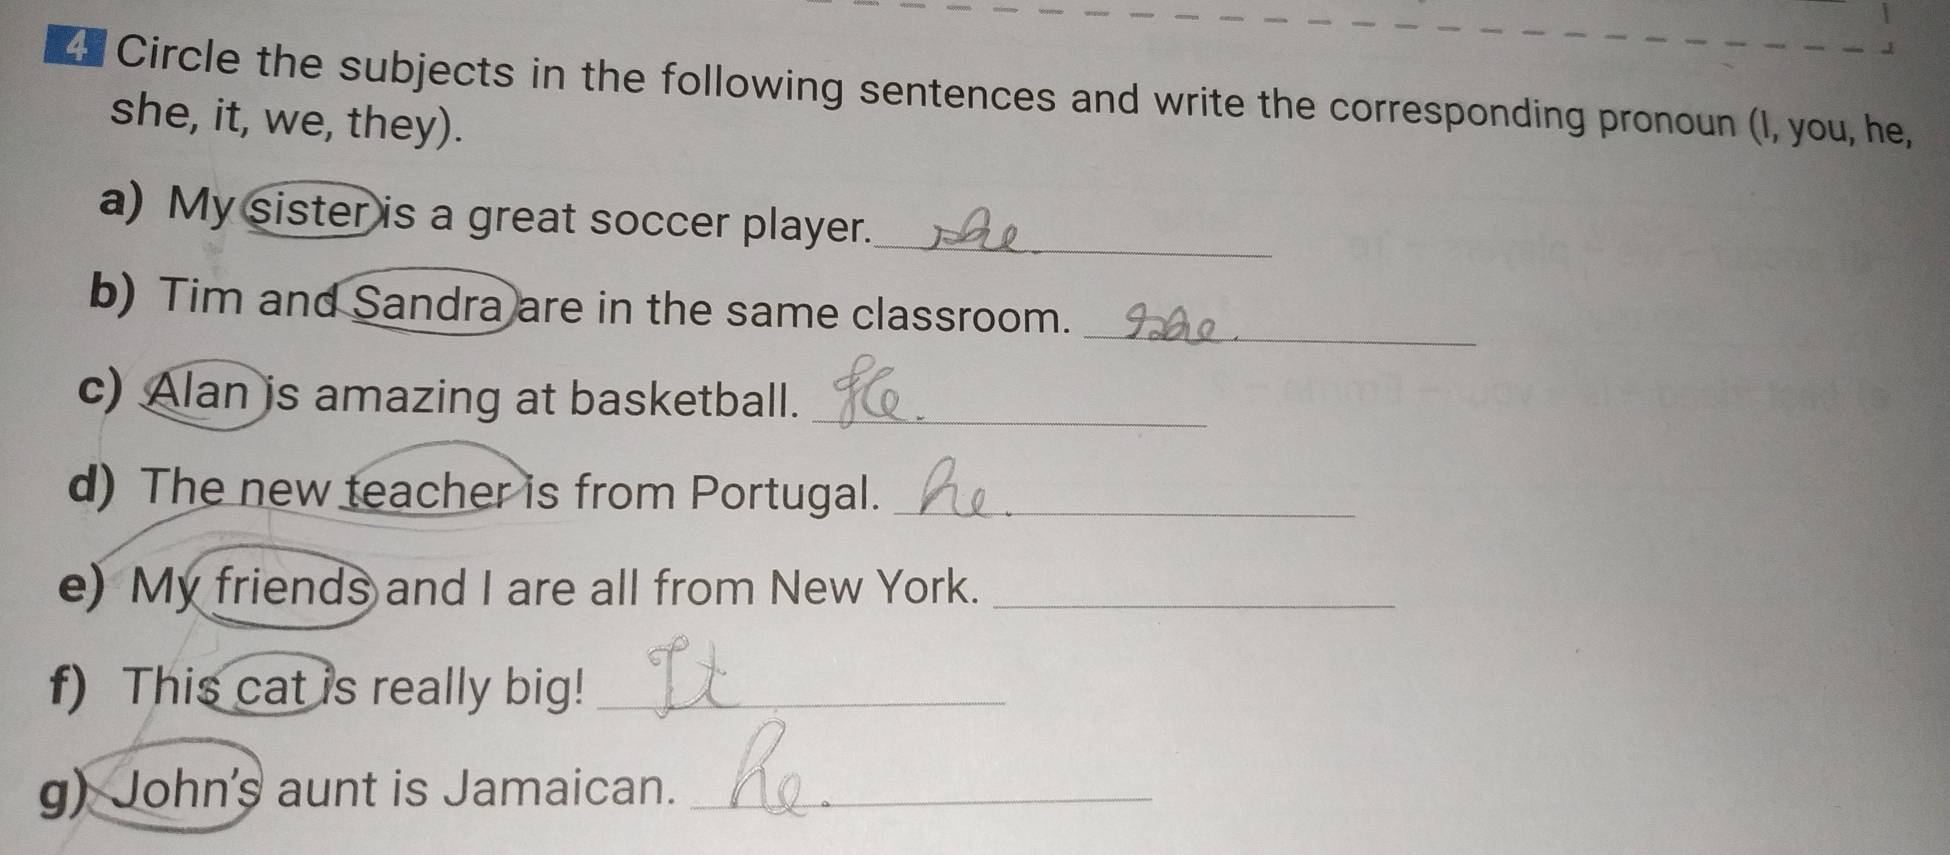 4 Circle the subjects in the following sentences and write the corresponding pronoun (I, you, he,
she, it, we, they).
a) My sister is a great soccer player. she.
b) Tim and Sandra are in the same classroom.
c) Alan is amazing at basketball. He.
d) The new teacher is from Portugal. he.
e) My friends and I are all from New York.
f) This cat is really big! It
g) John's aunt is Jamaican. he.